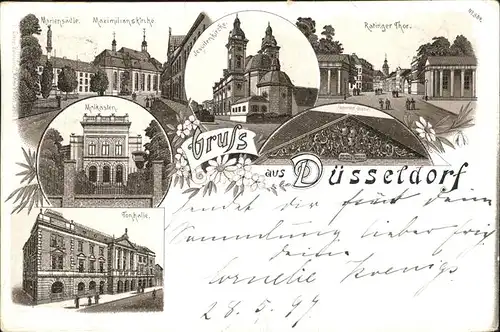 Mariensäule. Maximilianskirche.
Jesuitenkirche.
Ratinger Thor.
Malkasten.
Tonhalle.
Gruss
aus Düsseldorf
Sendet dir für deine
Sammlung lieber
deine
Cornelie Koenigs
28.5.97